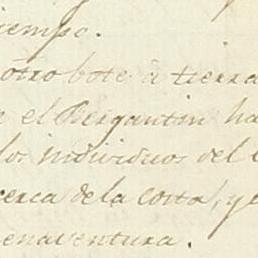 tiempo.
otro bote à tierra
el Bergantin ha
los individuos del
cerca de la costa, y e
enaventura.